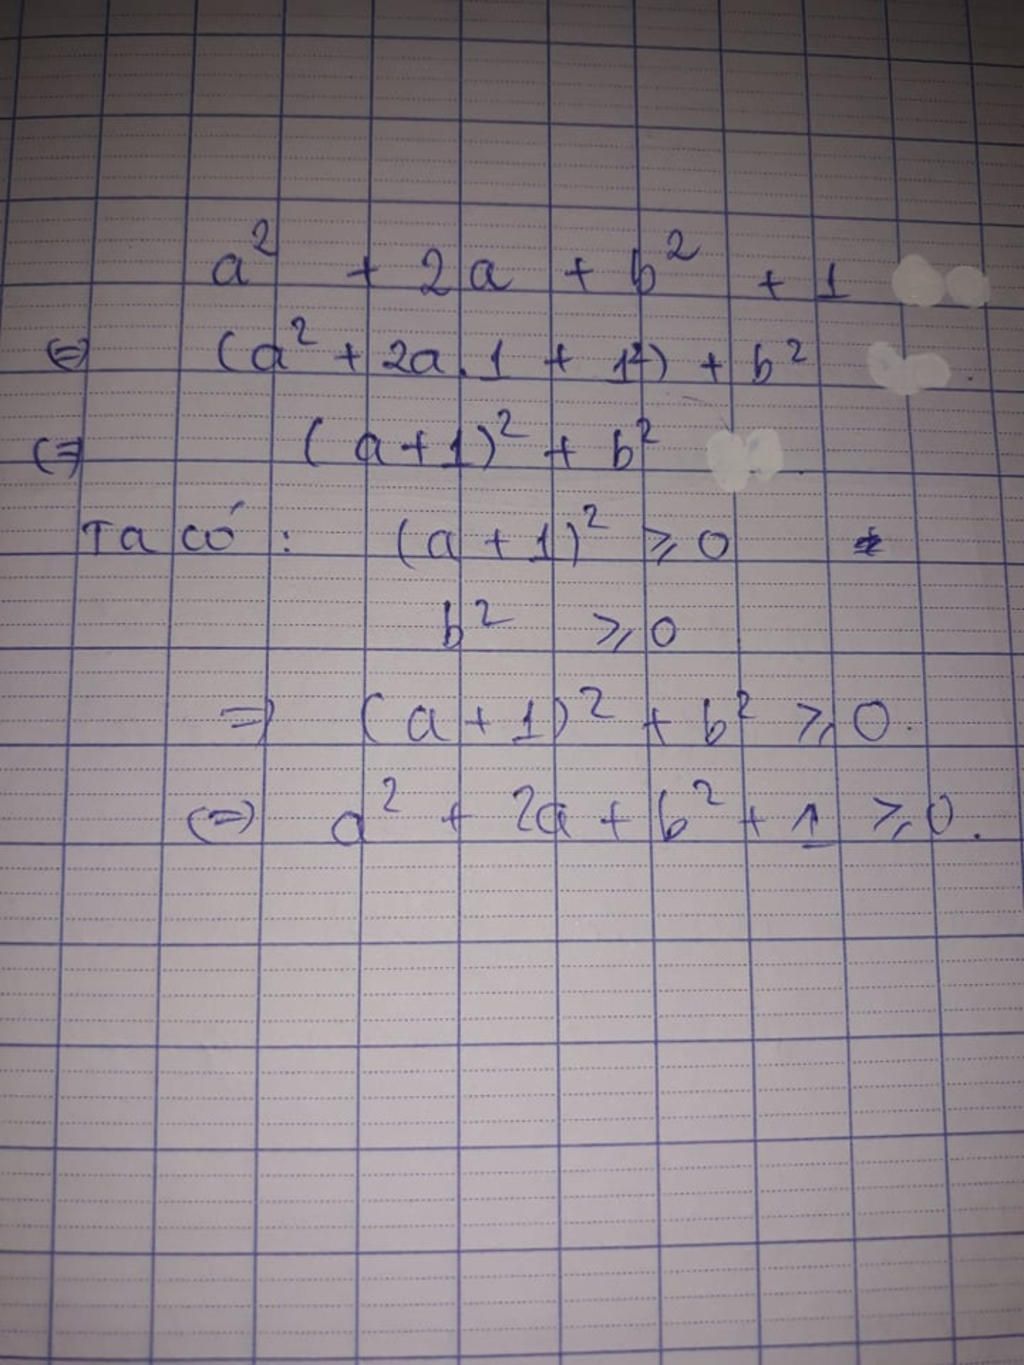 a² + 2a + b² + 1
⇔ (a² + 2a.1 + 1²) + b²
⇔ (a+1)² + b²
Ta có: (a+1)² ⩾ 0
b² ⩾ 0
⇒ (a+1)² + b² ⩾ 0.
⇔ a² + 2a + b² + 1 ⩾ 0.